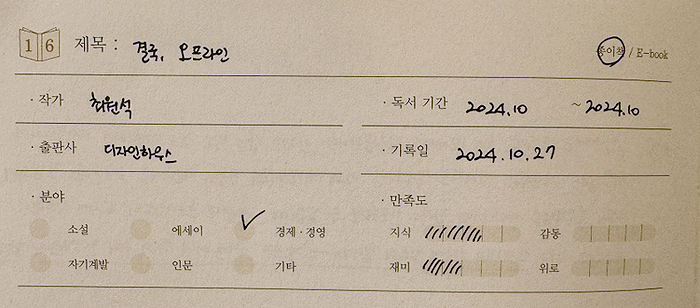 16 제목 : 결국, 오프라인 종이책 / E-book
· 작가 최원석 · 독서 기간 2024.10 ~ 2024.10
· 출판사 디자인하우스 · 기록일 2024.10.27
· 분야 · 만족도
소설 에세이 경제 · 경영 지식 감동
자기계발 인문 기타 재미 위로